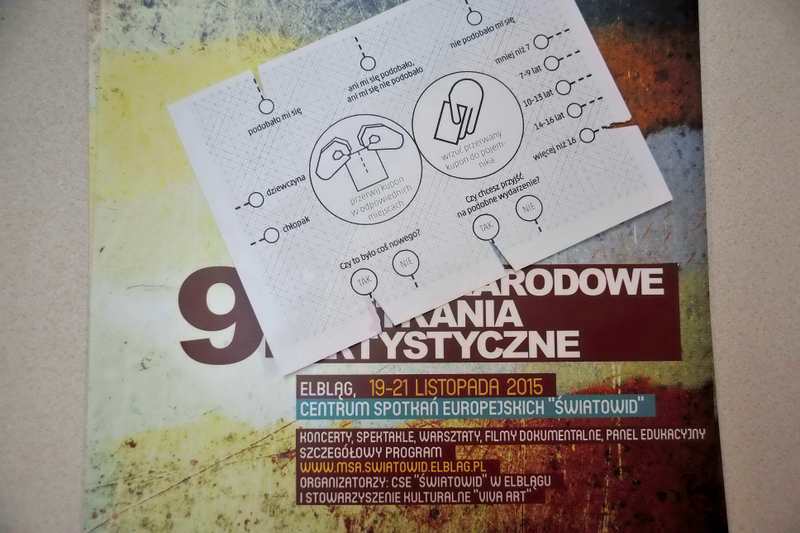 podobało mi się
ani mi się podobało,
ani mi się nie podobało
nie podobało mi się
mniej niż 7
7-9 lat
10-13 lat
14-16 lat
więcej niż 16
dziewczyna
chłopak
przerwij kupon
w odpowiednich
miejscach
wrzuć przerwany
kupon do pojem-
nika
Czy to było coś nowego?
TAK
NIE
Czy chcesz przyjść
na podobne wydarzenie?
TAK
NIE
9
ARODOWE
KANIA
TYSTYCZNE
ELBLĄG, 19-21 LISTOPADA 2015
CENTRUM SPOTKAŃ EUROPEJSKICH "ŚWIATOWID"
KONCERTY, SPEKTAKLE, WARSZTATY, FILMY DOKUMENTALNE, PANEL EDUKACYJNY
SZCZEGÓŁOWY PROGRAM
WWW.MSA.SWIATOWID.ELBLAG.PL
ORGANIZATORZY: CSE "ŚWIATOWID" W ELBLĄGU
I STOWARZYSZENIE KULTURALNE "VIVA ART"